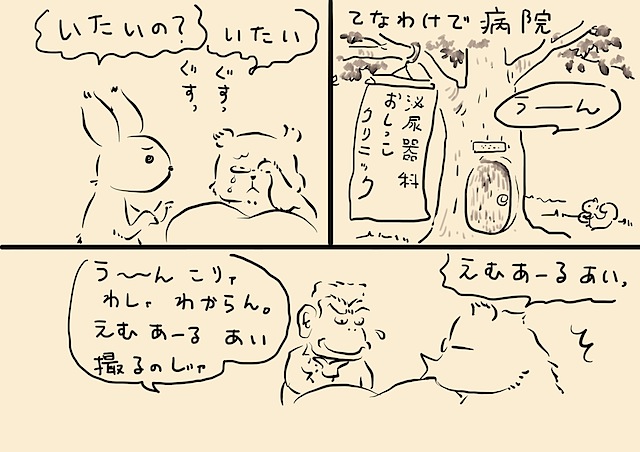 いたいの?
いたい
ぐすっ
ぐすっ
てなわけで病院
泌尿器科
おしっこ
クリニック
う──ん
う〜〜んこりゃ
わしゃわからん。
えむあーるあい
撮るのじゃ
えむあーるあい。